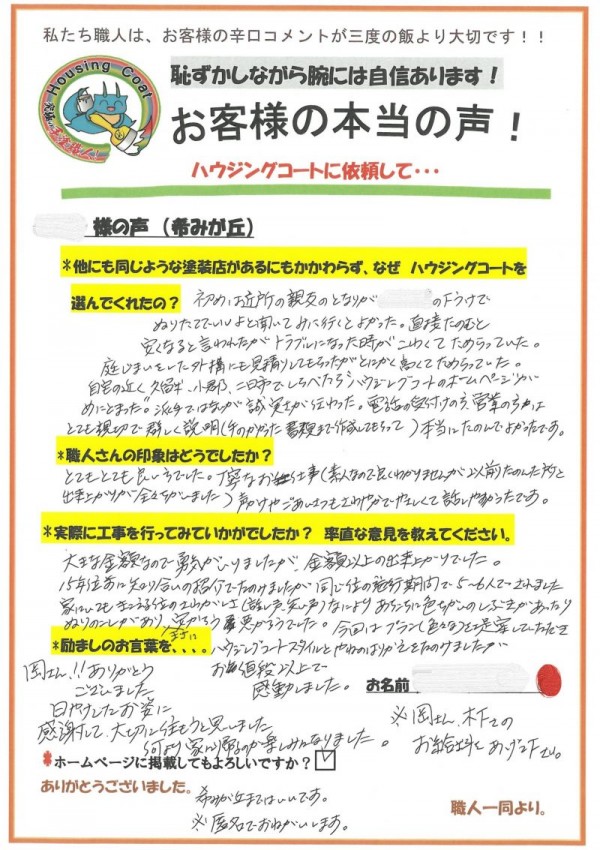 私たち職人は、お客様の辛口コメントが三度の飯より大切です！！
Housing Coat
恥ずかしながら腕には自信あります！
お客様の本当の声！
ハウジングコートに依頼して・・・
様の声 （希みが丘）
*他にも同じような塗装店があるにもかかわらず、なぜ ハウジングコートを
選んでくれたの？ 初めは近所の親友のとなりが の下うけで
ぬりたてでいいよと聞いてみに行くとよかった。直接たのむと
安くなると言われたがトラブルになった時がこわくてためらっていた。
庭じまいをした外構にも見積りしてもらったがとにかく高くてためらっていた。
自宅の近く久留米、小郡、二日市でしらべたらハウジングコートのホームページが
めにとまった。派手ではないが誠実さが伝わった。電話の受付けの方、営業の方は
とても親切で詳しく説明(手のかかった書類まで作成してもらって)本当にたのんでよかったです。
*職人さんの印象はどうでしたか？
とてもとても良い方でした。丁寧なお仕事(素人なので良くわかりませんが以前たのんだ所と
出来上がりが全々ちがいました)声かけやごあいさつもさわやかでやさしくて話しやすかったです。
*実際に工事を行ってみていかがでしたか？ 率直な意見を教えてください。
大きな金額なので勇気がいりましたが、金額以上の出来上がりでした。
15年位前に知り合いの紹介でたのみましたが同じ位の施行期間で5〜6人でされました
家にいてもきこえる位の (話し声、笑い声)なによりあちこちに色ちがいのしぶきがあったり
ぬりのこしがあり、 。今回はプラン(色々な)を提案していただき
*励ましのお言葉を、、、、。 ハウジングコートスタイルとやねのはりかえをたのみましたが
お値段以上で
感動しました。
岡さん!!ありがとう
ございました
日やけしたお姿に
感謝して、大切に住もうと思いました
何より家に帰るのが楽しみになりました。
お名前
※岡さん、木下さんの
お給料をあげて下さい。
*ホームページに掲載してもよろしいですか？ ☑
ありがとうございました。
希みが丘まではいいです。
※匿名でおねがいします。
職人一同より。